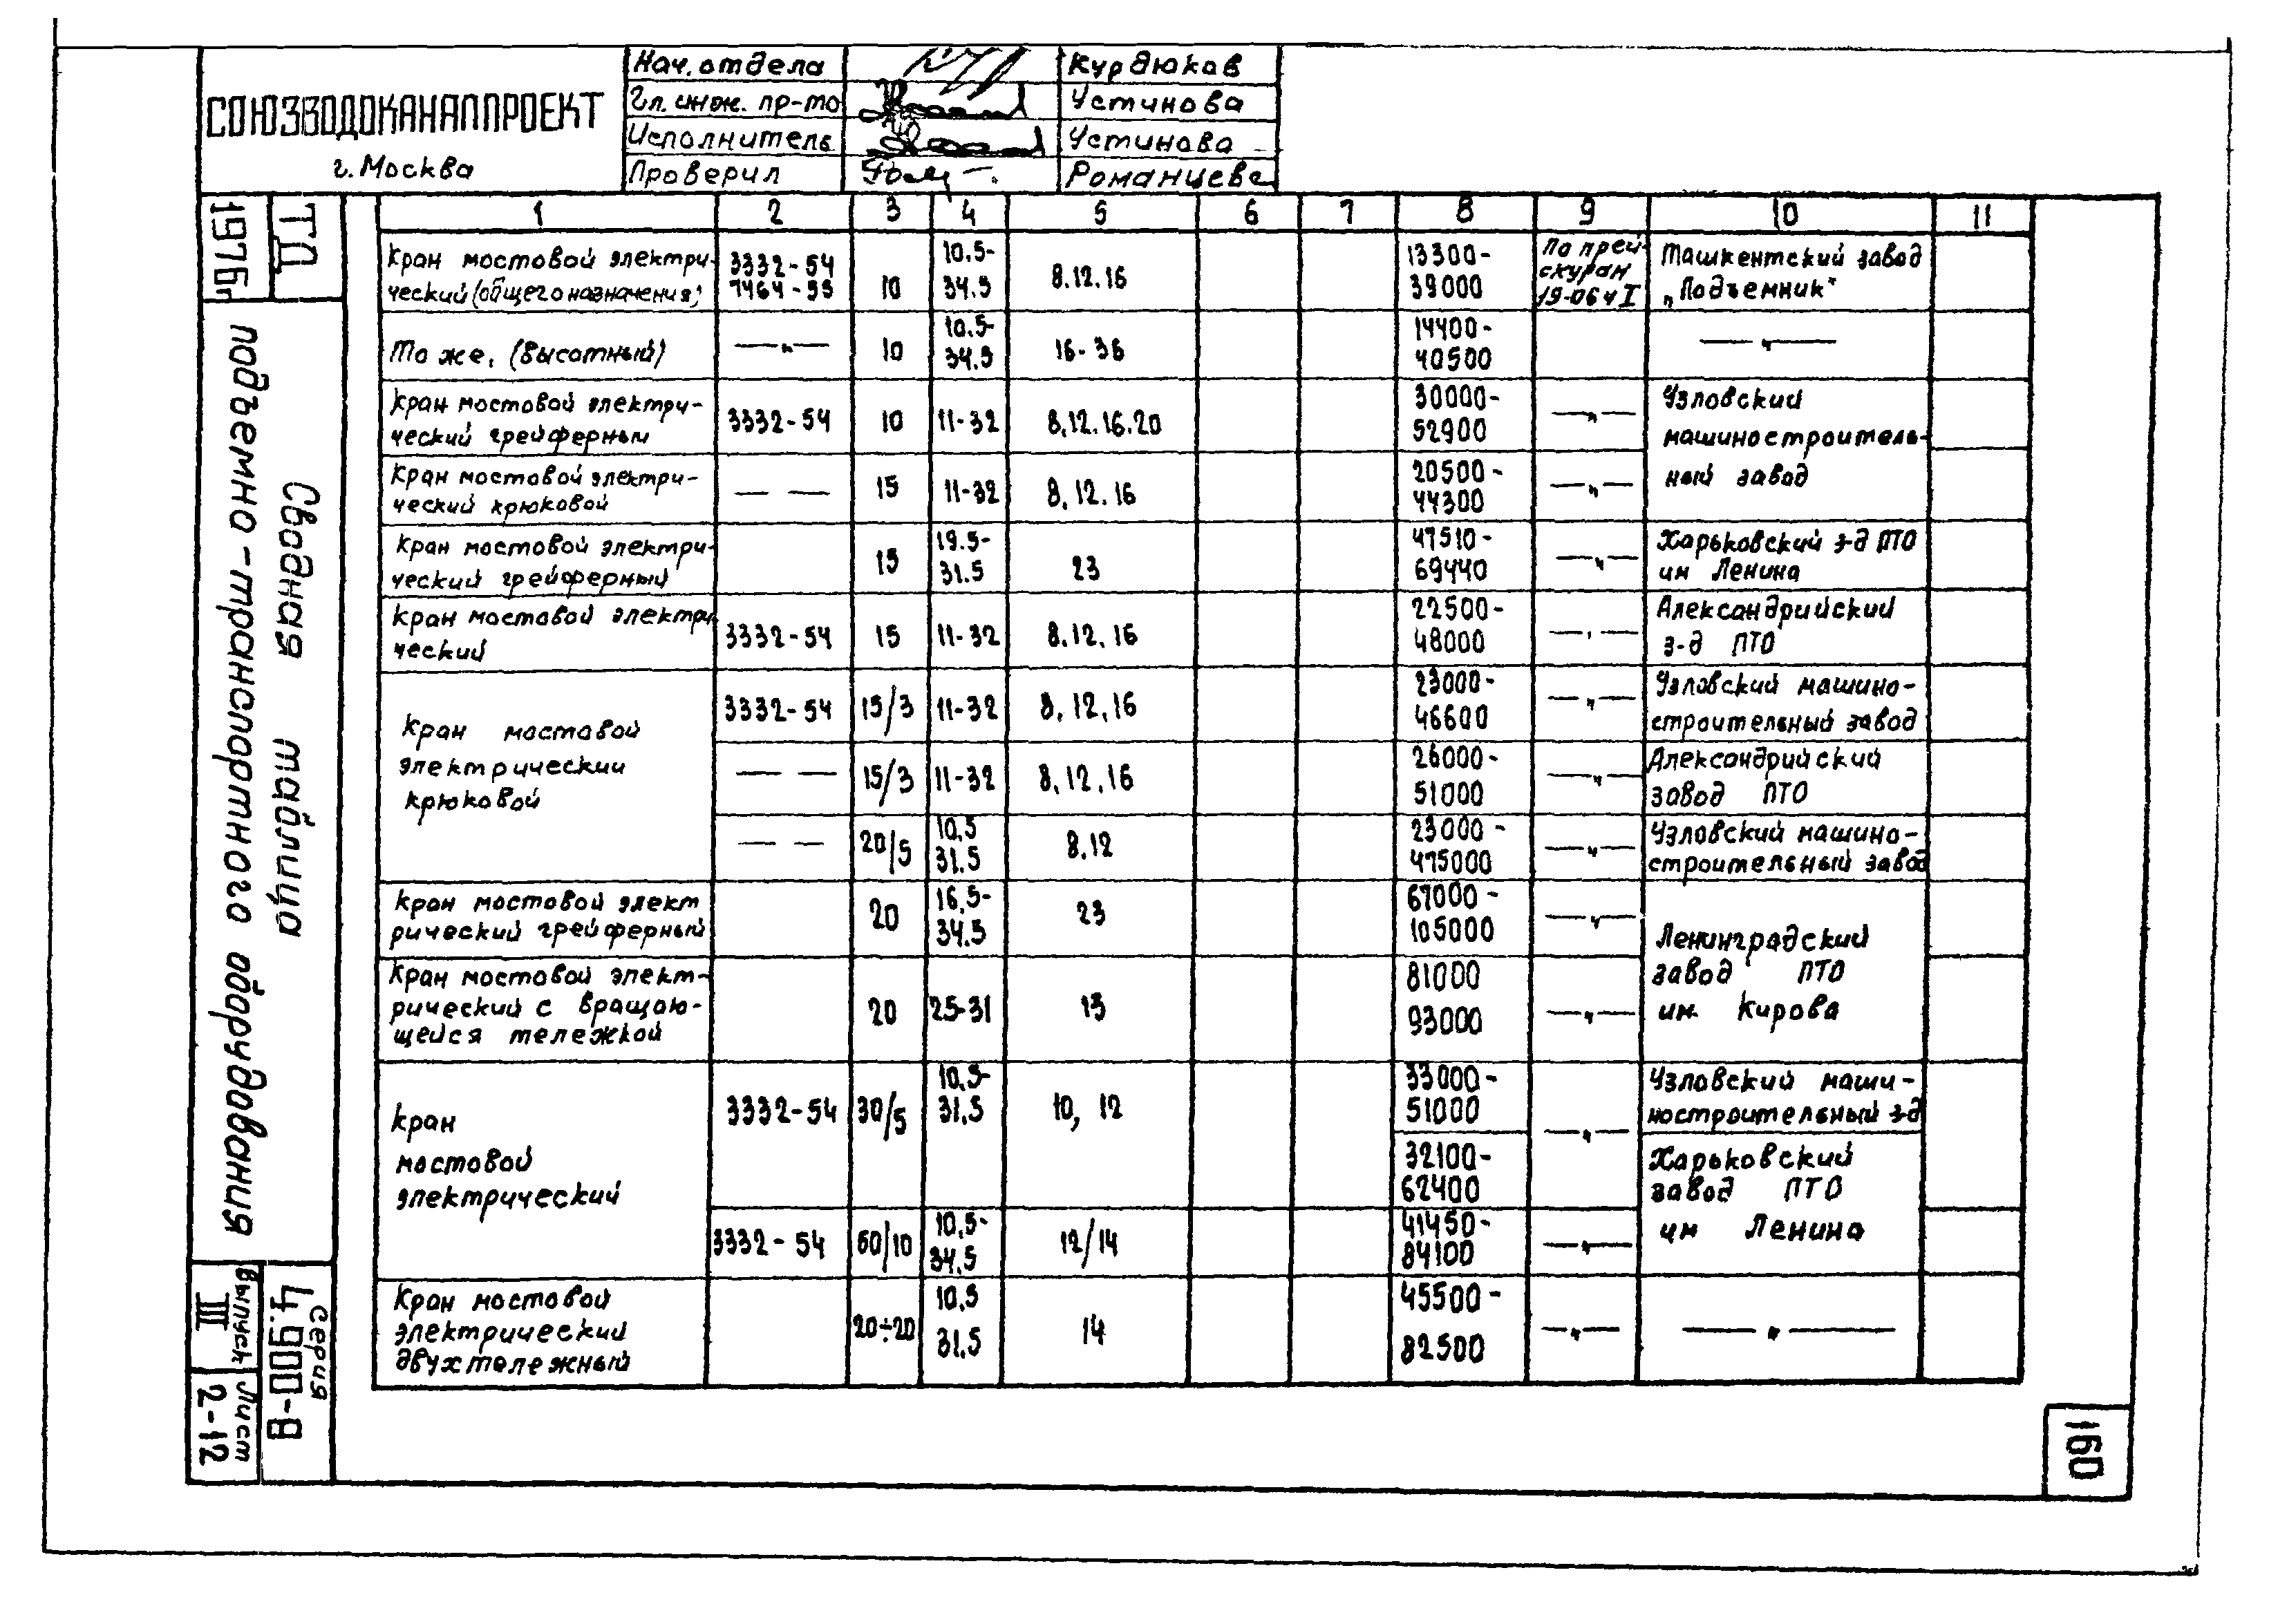 СОЮЗВОДОКАНАЛПРОЕКТ
г. Москва
Нач. отдела Курдюков
Гл. инж. пр-та Устинова
Исполнитель Устинова
Проверил Романцева
1976г
ТД
Сводная таблица
подъемно-транспортного оборудования
Серия
4.900-8
Выпуск
III
Лист
2-12
1 2 3 4 5 6 7 8 9 10 11
Кран мостовой электри-
ческий (общего назначения)
3332-54
7464-55
10
10.5-
34.5
8.12.16
13300-
39000
По прей-
скуран
19-06 ч I
Ташкентский завод
„Подъемник"
То же, (высотный)
—„—
10
10.5-
34.5
16-36
14400-
40500
—„—
Кран мостовой электри-
ческий грейферным
3332-54
10
11-32
8.12.16.20
30000-
52900
—„—
Узловский
машиностроитель-
ный завод
Кран мостовой электри-
ческий крюковой
— —
15
11-32
8.12.16
20500-
44300
—„—
Кран мостовой электри-
ческий грейферный
15
19.5-
31.5
23
47510-
69440
—„—
Харьковский з-д ПТО
им Ленина
Кран мостовой электри
ческий
3332-54
15
11-32
8.12.16
22500-
48000
—„—
Александрийский
з-д ПТО
Кран мостовой
электрический
крюковой
3332-54
15/3
11-32
8.12.16
23000-
46600
—„—
Узловский машино-
строительный завод
— —
15/3
11-32
8.12.16
26000-
51000
—„—
Александрийский
завод ПТО
— —
20/5
10.5
31.5
8.12
23000-
475000
—„—
Узловский машино-
строительный завод
Кран мостовой элект
рический грейферный
20
16.5-
34.5
23
67000-
105000
—„—
Ленинградский
завод ПТО
им Кирова
Кран мостовой элект-
рический с вращаю-
щейся тележкой
20
25-31
13
81000
93000
—„—
Кран
мостовой
электрический
3332-54
30/5
10.5-
31.5
10, 12
33000-
51000
—„—
Узловский маши-
ностроительный з-д
32100-
62400
Харьковский
завод ПТО
им Ленина
3332-54
50/10
10.5-
34.5
12/14
41450-
84100
—„—
Кран мостовой
электрический
двухтележный
20÷20
10.5
31.5
14
45500-
82500
—„—
—„—
160